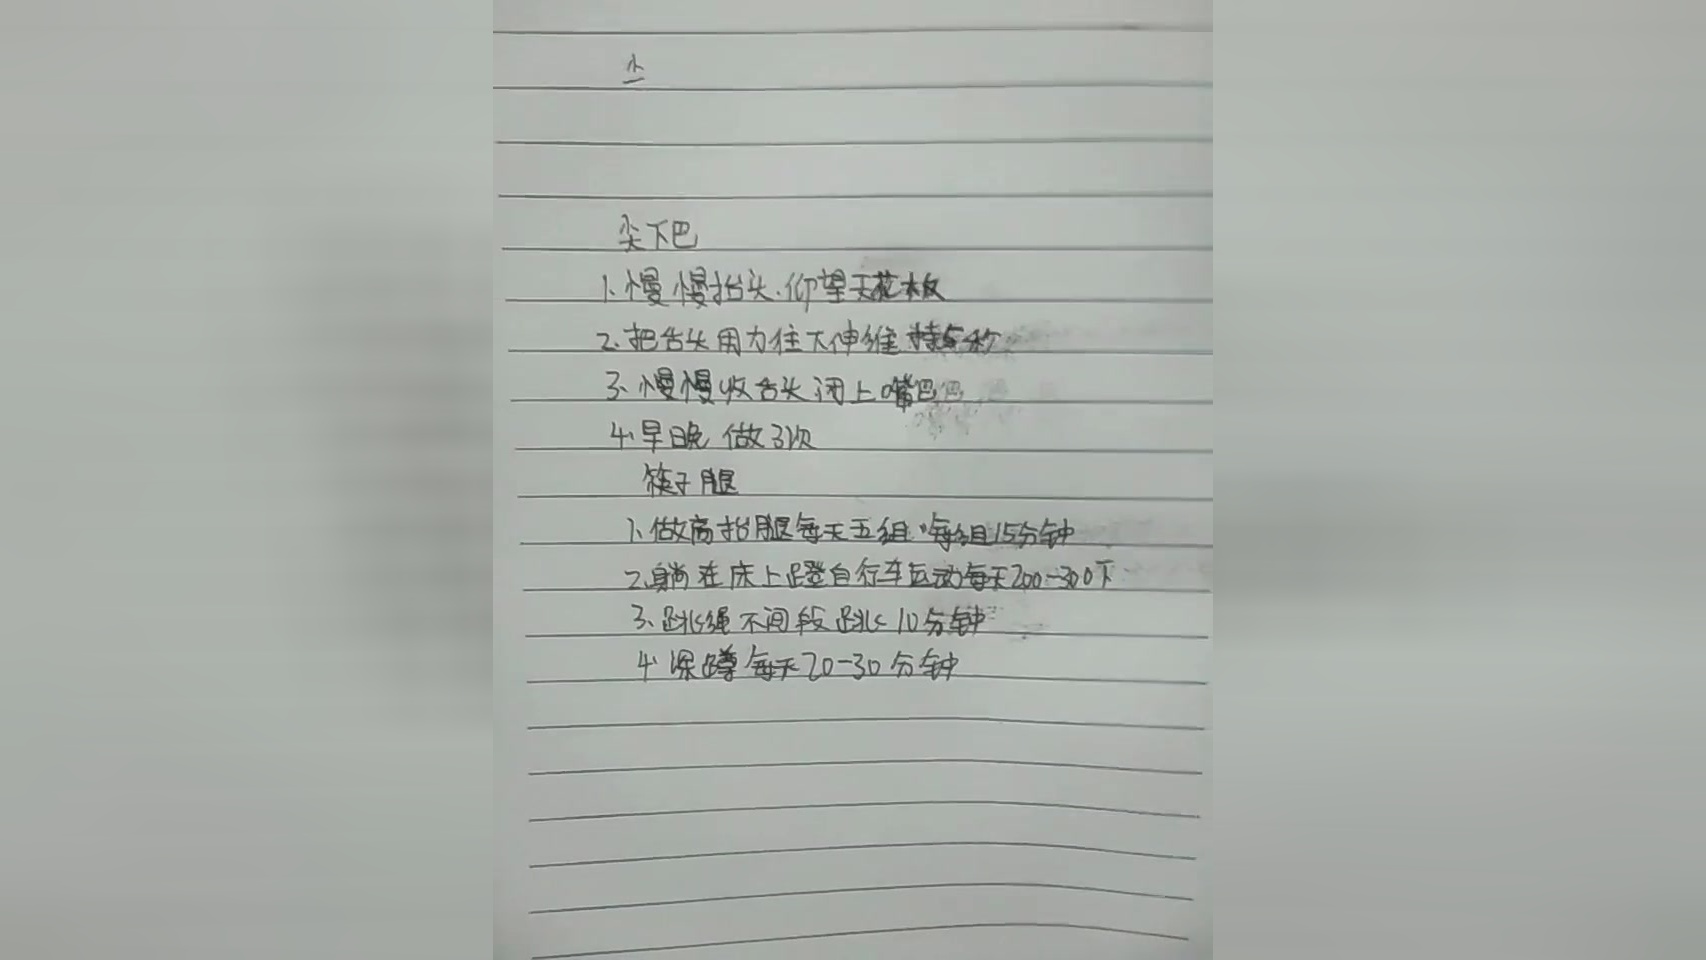 尖下巴
1、慢慢抬头.仰望天花板
2、把舌头用力往大伸维持5秒
3、慢慢收舌头闭上嘴巴
4、早晚做3次
筷子腿
1、做高抬腿每天五组,每组15分钟
2、躺在床上蹬自行车运动每天200-300下
3、跳绳不间段跳10分钟
4、深蹲每天20-30分钟